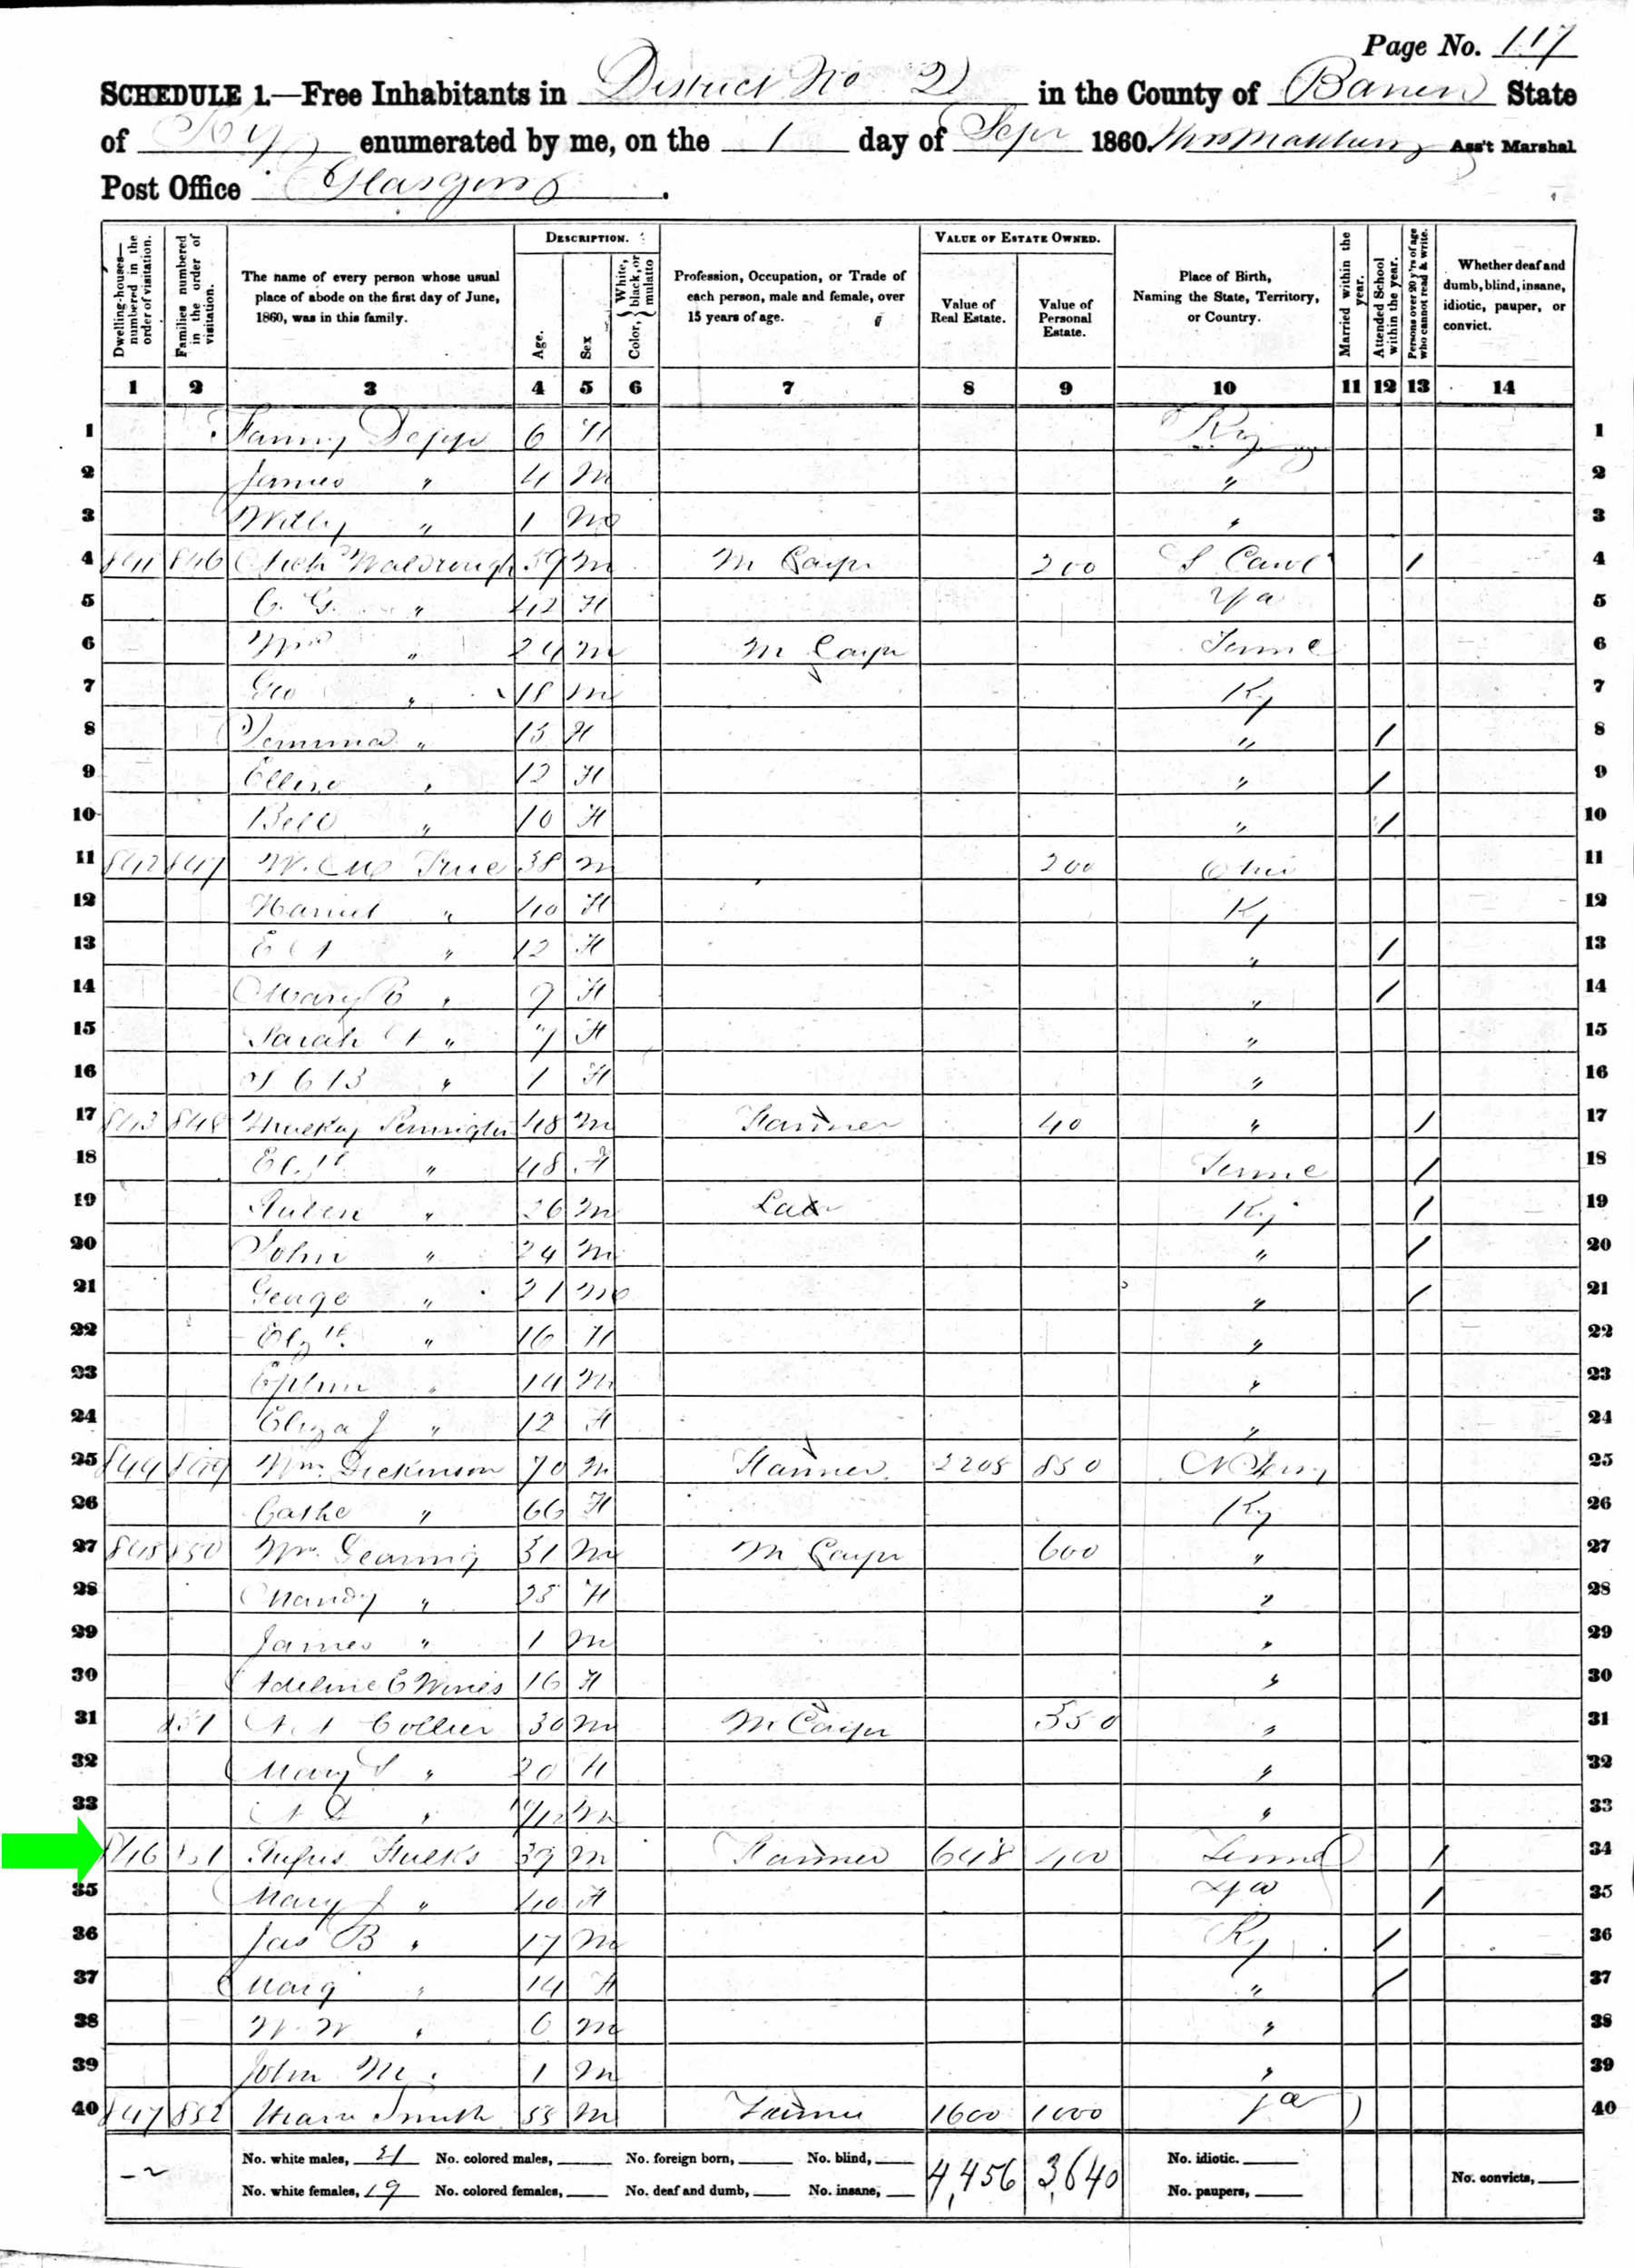 Page No. 117
SCHEDULE 1.—Free Inhabitants in District No 2 in the County of Barren State
of Ky enumerated by me, on the 1 day of Sepr 1860. Ass't Marshal
Post Office Glasgow.
DESCRIPTION. VALUE OF ESTATE OWNED.
Dwelling-houses—numbered in the order of visitation.
Families numbered in the order of visitation.
The name of every person whose usual place of abode on the first day of June, 1860, was in this family.
Age.
Sex
Color, { White, black, or mulatto
Profession, Occupation, or Trade of each person, male and female, over 15 years of age.
Value of Real Estate.
Value of Personal Estate.
Place of Birth, Naming the State, Territory, or Country.
Married within the year.
Attended School within the year.
Persons over 20 y'rs of age who cannot read & write.
Whether deaf and dumb, blind, insane, idiotic, pauper, or convict.
1 2 3 4 5 6 7 8 9 10 11 12 13 14
1 Fanny Depp 6 F Ky 1
2 James " 4 M " 2
3 Willy " 1 M " 3
4 841 846 39 M M Carpr 200 S Carol / 4
5 C. G. " 42 F Va 5
6 Wm " 24 M M Carpr Tenne 6
7 Geo " 18 M Ky 7
8 " 13 F " / 8
9 Ellen " 12 F " / 9
10 Bell " 10 F " / 10
11 842 847 True 38 M 200 Ohio 11
12 Harriet " 40 F Ky 12
13 E A " 12 F " / 13
14 Mary E " 9 F " / 14
15 Sarah A " 7 F " 15
16 " 1 F " 16
17 843 848 Pennington 48 M Farmer 40 " / 17
18 Elzth " 48 F Tenne / 18
19 Ruben " 26 M Lab Ky / 19
20 John " 24 M " / 20
21 George " 21 M " / 21
22 Elzth " 16 F " 22
23 " 14 M " 23
24 Eliza J " 12 F " 24
25 844 849 Wm Dickinson 70 M Farmer 2208 850 25
26 Cathe " 66 F Ky 26
27 845 850 Wm Gearing 31 M M Carpr 600 " 27
28 Mandy " 25 F " 28
29 James " 1 M " 29
30 Adeline E 16 F " 30
31 851 Collier 30 M M Carpr 550 " 31
32 Mary S " 20 F " 32
33 " M " 33
34 846 851 Rufus Hulks 39 M Farmer 648 400 Tenne / 34
35 Mary J " 40 F Va / 35
36 Jas B " 17 M Ky / 36
37 Marg " 14 F " / 37
38 W. W " 6 M " 38
39 John M " 1 M " 39
40 847 852 Hiram Smith 55 M Farmer 1600 1000 Va 40
No. white males, 21 No. colored males, No. foreign born, No. blind, 4,456 3,640 No. idiotic. No. convicts,
No. white females, 19 No. colored females, No. deaf and dumb, No. insane, No. paupers,